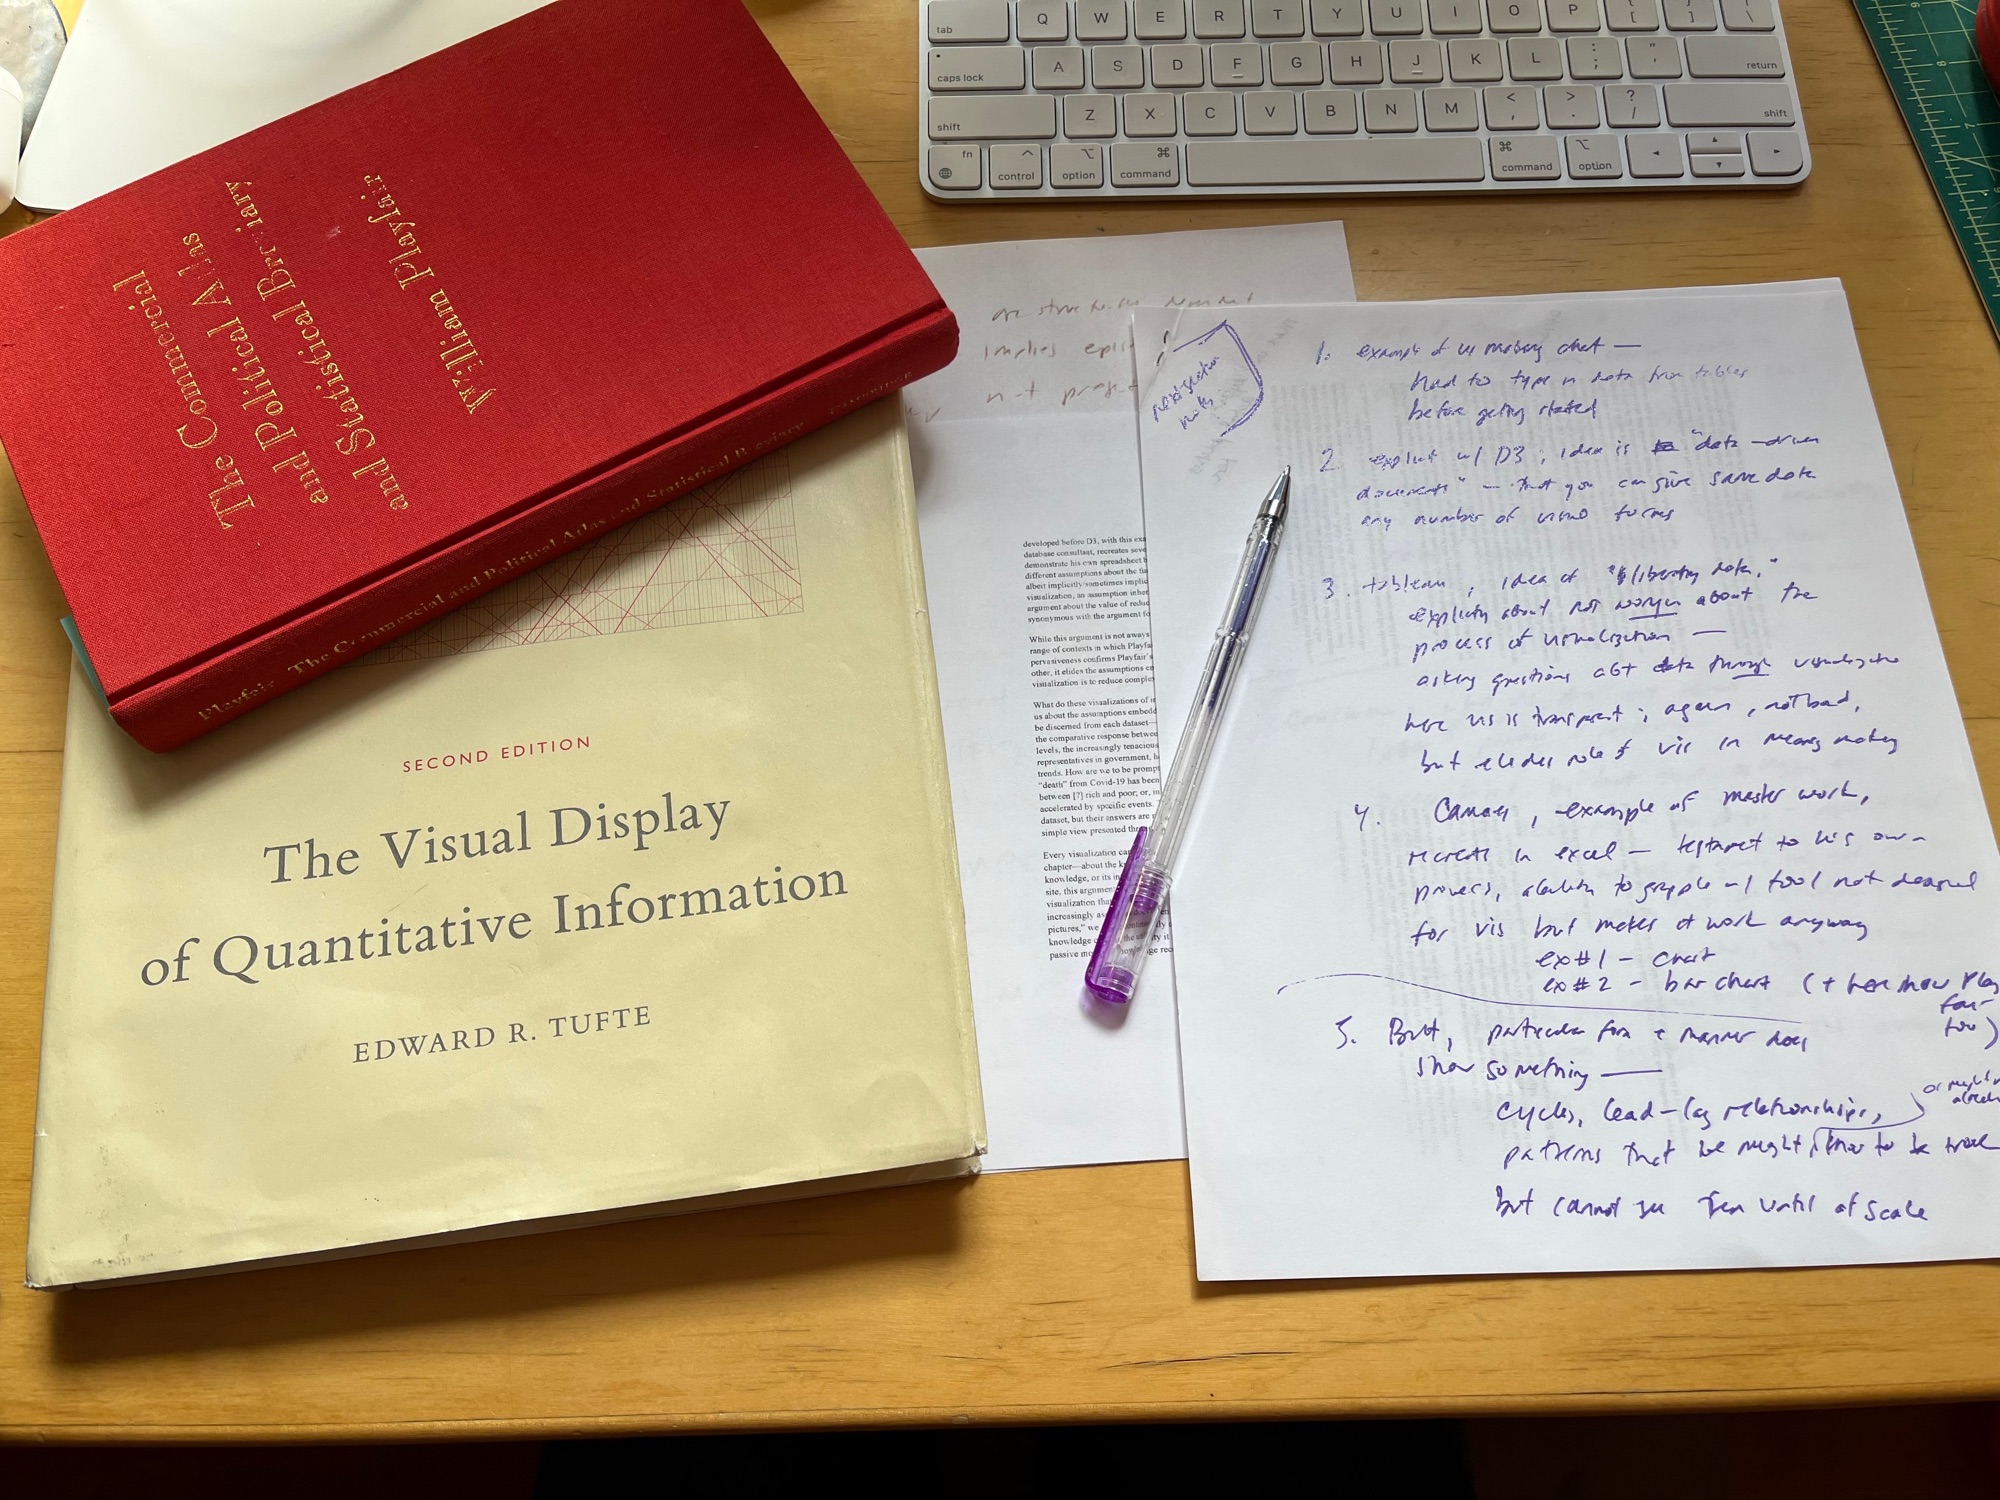 The Commercial
and Political Atlas
and Statistical Breviary
William Playfair
Playfair The Commercial and Political Atlas and Statistical Breviary CAMBRIDGE
SECOND EDITION
The Visual Display
of Quantitative Information
EDWARD R. TUFTE
tab Q W E R T Y U I O P { [ } ] | \
caps lock A S D F G H J K L : ; " ' return
shift Z X C V B N M < , > . ? / shift
fn control option command command option
implies
developed before D3, with this exa
database consultant, recreates seve
demonstrate his own spreadsheet
different assumptions about the fu
albeit implicitly sometimes implic
visualization, an assumption inher
argument about the value of reduc
synonymous with the argument fo
While this argument is not aways
range of contexts in which Playfa
pervasiveness confirms Playfair's
other, it elides the assumptions
visualization is to reduce comple
What do these visualizations of
us about the assumptions embedd
be discerned from each dataset—
the comparative response betwee
levels, the increasingly tenacious
representatives in government,
trends. How are we to be prompt
"death" from Covid-19 has been
between [?] rich and poor; or, in
accelerated by specific events.
dataset, but their answers are
simple view presented thr
Every visualization ca
chapter—about the k
knowledge, or its in
site, this argumen
visualization tha
increasingly as
pictures," we
knowledge
passive mo
next section
notes
1. example of us making chart —
had to type in data from tables
before getting started
2 explicit w/ D3; idea is "data-driven
documents" — that you can give same data
any number of visual forms
3. tableau, idea of "liberating data,"
explicitly about not worrying about the
process of visualization —
asking questions abt data through visualization
here vis is transparent; again, not bad,
but elides role of vis in meaning making
4. example of master work,
recreate in excel — testament to his own
prowess, ability to grapple w/ tool not designed
for vis but makes it work anyway
ex #1 - chart
ex #2 - bar chart (+ here show Play
fair
too)
5. But, particular form + manner does
show something —
cycles, lead-lag relationships,
patterns that we might know to be true
but cannot see them until at scale